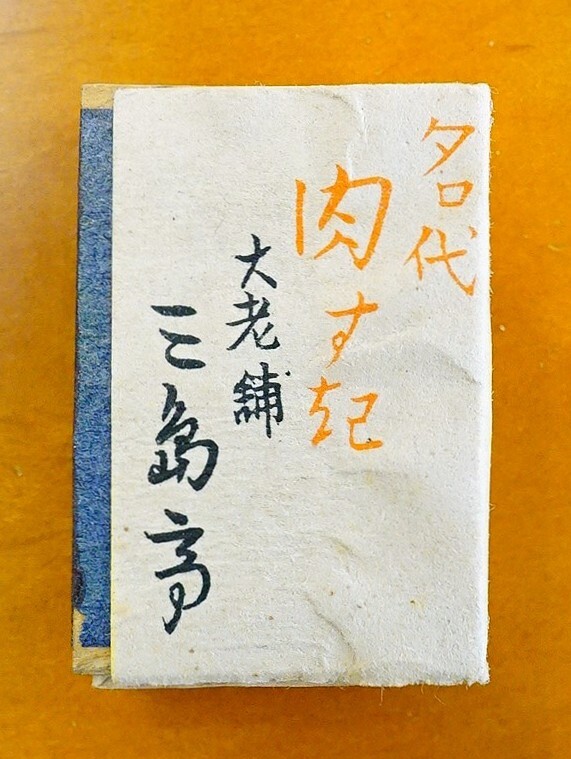 名代
肉す起
大老舗
三島亭